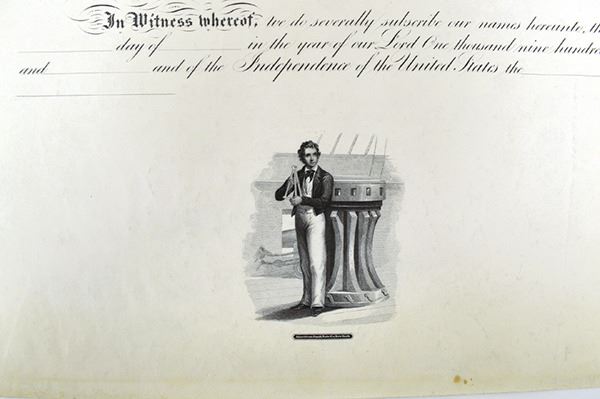 In Witness whereof, we do severally subscribe our names hereunto, th
day of in the year of our Lord One thousand nine hundre
and and of the Independence of the United States the
American Bank Note Co. New York.